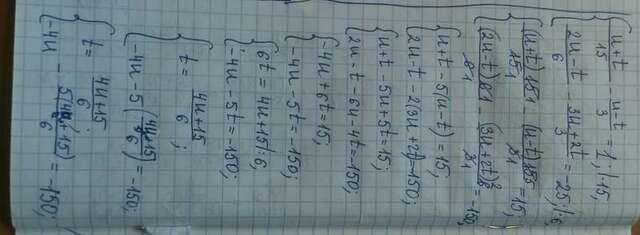 (u+t)/15 - (u-t)/3 = 1; |·15,
(2u-t)/6 - (3u+2t)/3 = -25; |·6,
(u+t)15/15 - (u-t)15/3 = 15,
(2u-t)6/6 - (3u+2t)6/3 = -150,
u+t - 5(u-t) = 15;
2u-t - 2(3u+2t) = -150;
u+t - 5u+5t = 15;
2u - t - 6u - 4t = -150;
-4u + 6t = 15;
-4u - 5t = -150;
6t = 4u+15 |:6,
-4u - 5t = -150;
t = (4u+15)/6 ;
-4u - 5((4u+15)/6) = -150;
t = (4u+15)/6 ;
-4u - 5(4u+15)/6 = -150;